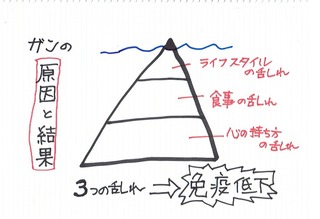 ガンの
原因と結果
ライフスタイル
の乱れ
食事の乱れ
心の持ち方
の乱れ
3つの乱れ ⇒ 免疫低下